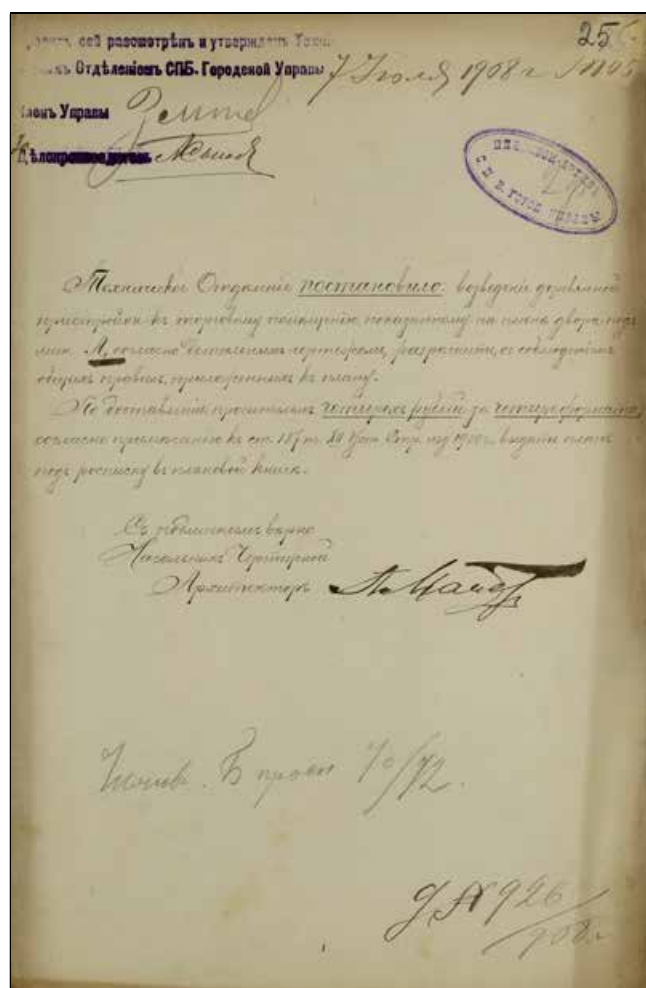 25
сей разсмотрѣнъ и утвержденъ
Отдѣленіемъ СПБ. Городской Управы 7 Іюля 1908 г.
Членъ Управы
Дѣлопроизводитель
С. П. Б. ГОРОД. УПРАВЫ
Техническое Отдѣленіе постановило: возведеніе деревянной
пристройки къ торговому помѣщенію, показанному на планѣ двора подъ
лит. согласно чертежамъ, разрѣшить, съ соблюденіемъ
общихъ правилъ, приложенныхъ къ плану.
По доставленіи просителемъ четырехъ рублей за четыре формата,
согласно примѣчанію къ ст. 187 т. XII Уст. Стр. изд. 1900 г. выдать планъ
подъ росписку въ плановой книгѣ.
Съ подлиннымъ вѣрно
Начальникъ Чертежной
Архитекторъ
70/72.
Д. № 926/908 г.